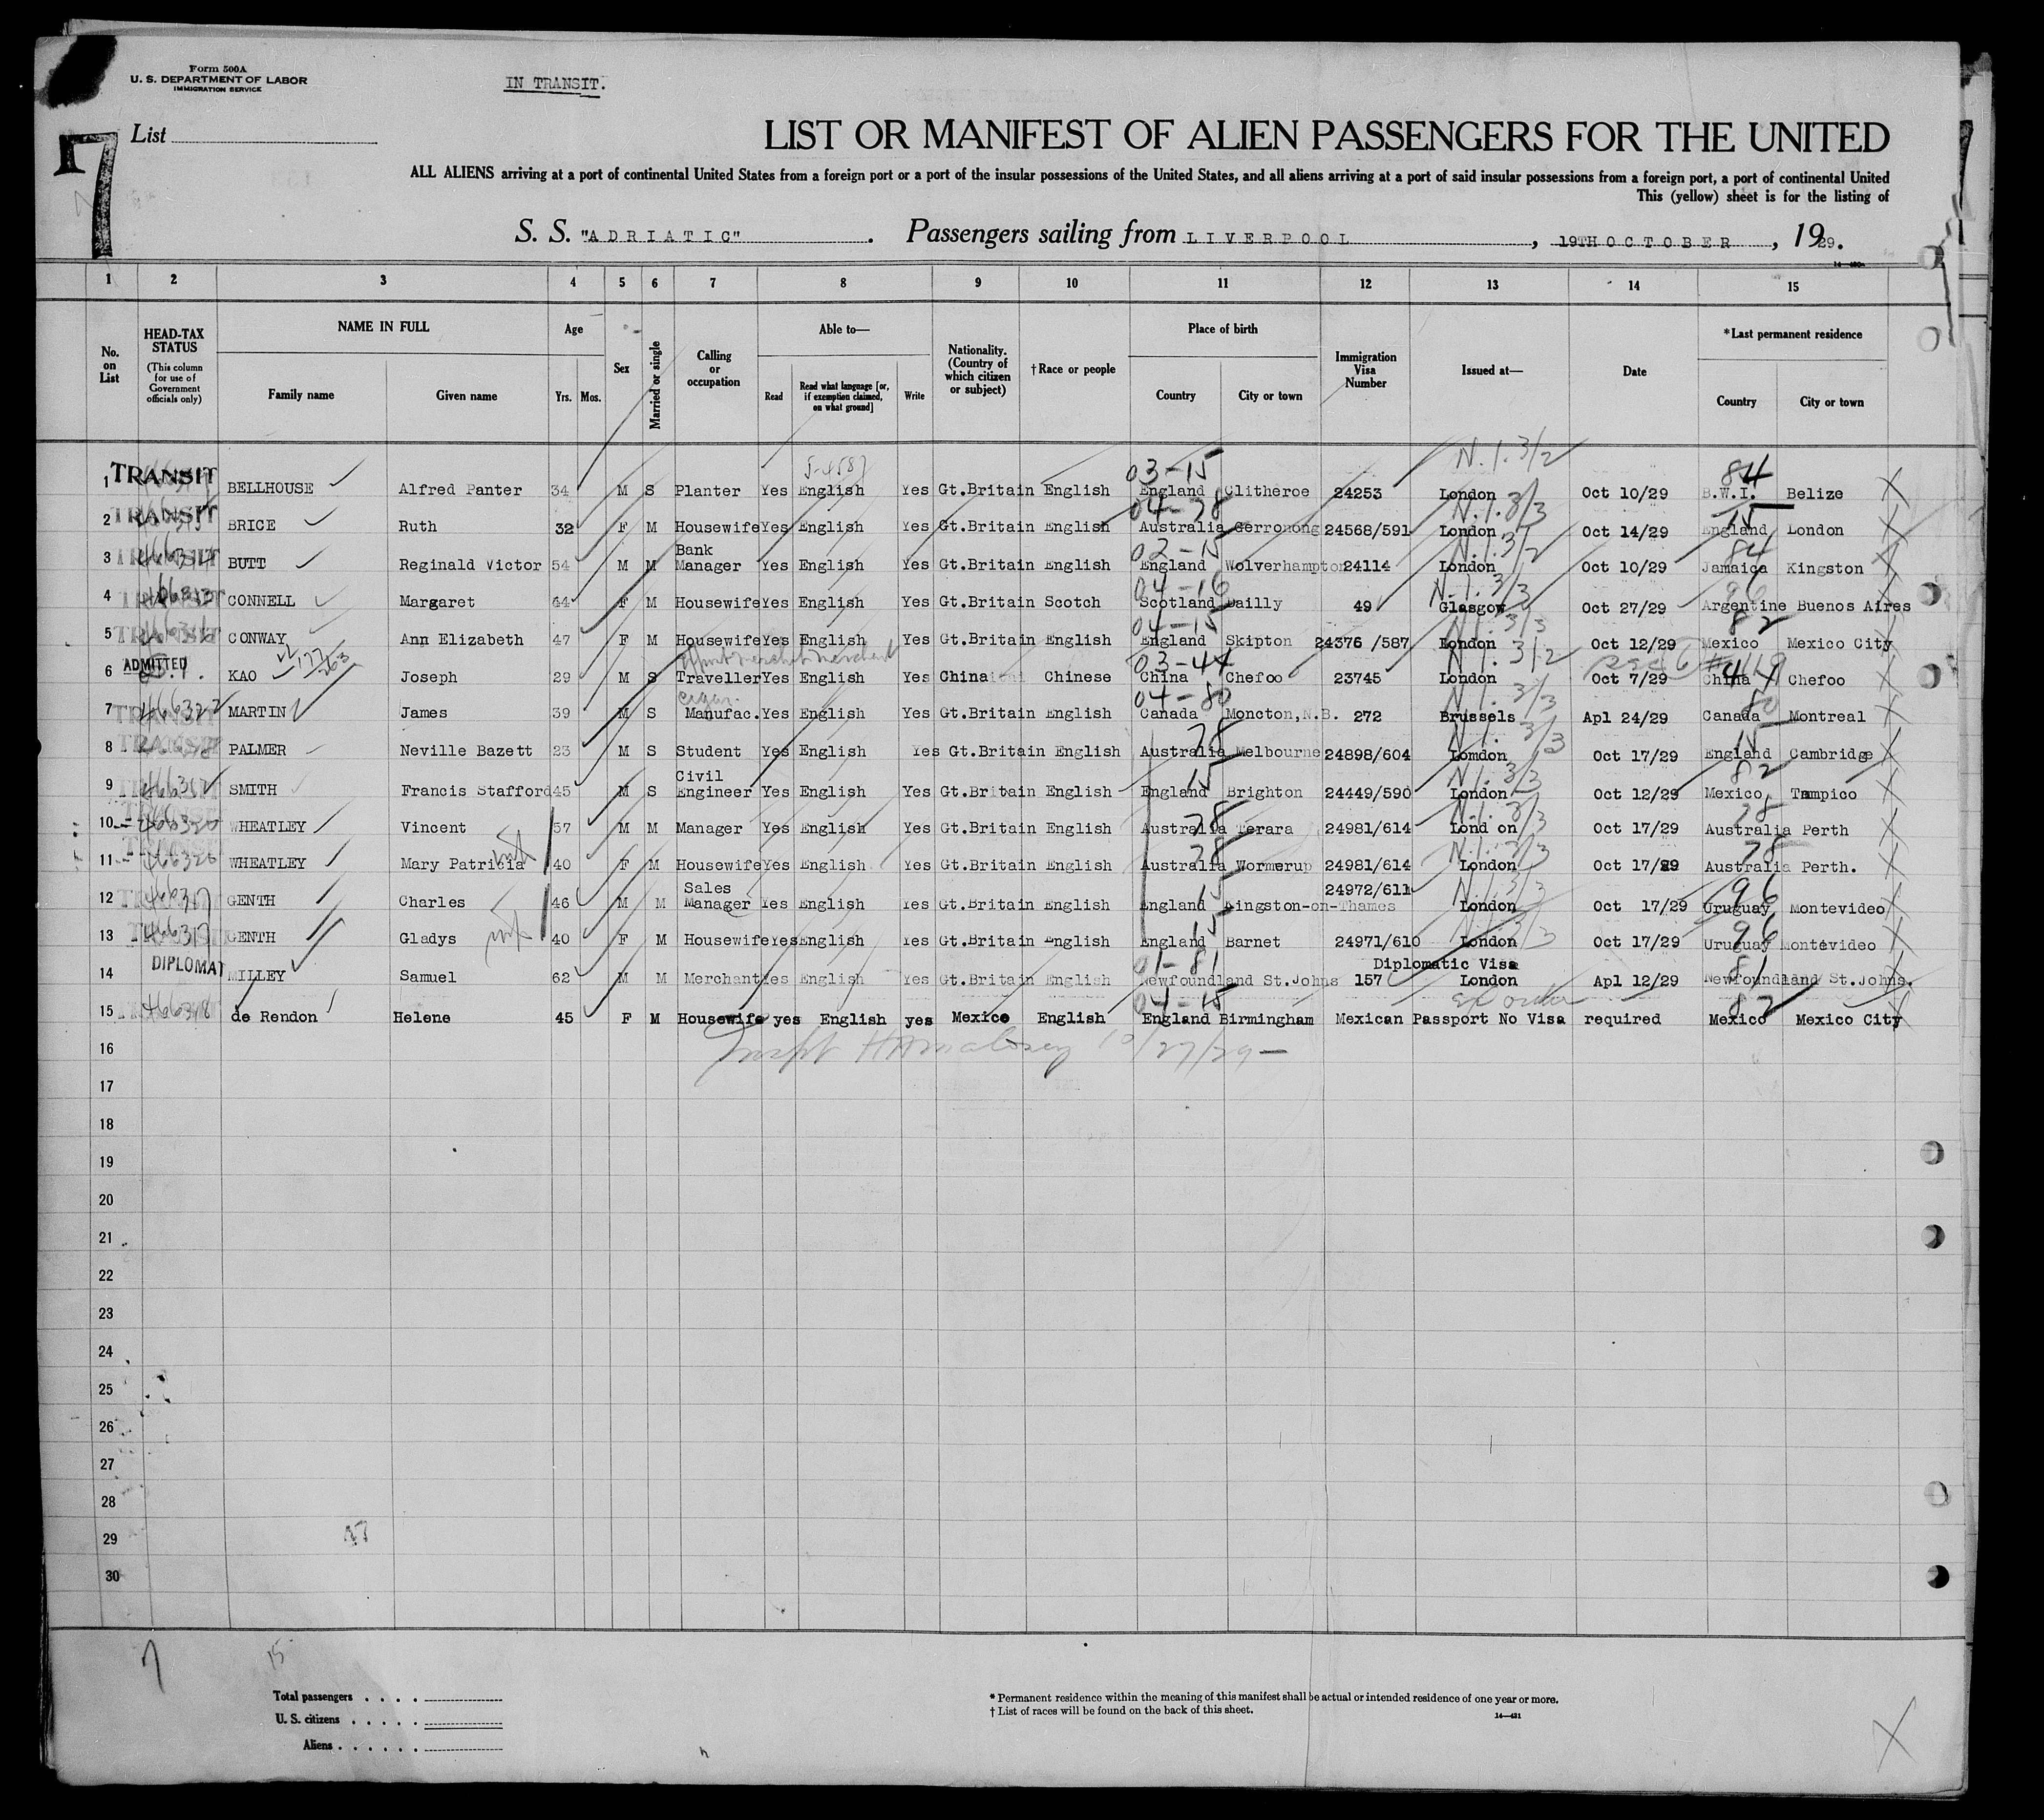 Form 500A
U. S. DEPARTMENT OF LABOR
IMMIGRATION SERVICE
IN TRANSIT.
17
List
LIST OR MANIFEST OF ALIEN PASSENGERS FOR THE UNITED
ALL ALIENS arriving at a port of continental United States from a foreign port or a port of the insular possessions of the United States, and all aliens arriving at a port of said insular possessions from a foreign port, a port of continental United
This (yellow) sheet is for the listing of
S. S. "ADRIATIC" . Passengers sailing from LIVERPOOL , 19TH OCTOBER , 1929.
1 2 3 4 5 6 7 8 9 10 11 12 13 14 15
No. on List
HEAD-TAX STATUS (This column for use of Government officials only)
NAME IN FULL Family name Given name
Age Yrs. Mos.
Sex
Married or single
Calling or occupation
Able to— Read Read what language [or, if exemption claimed, on what ground] Write
Nationality. (Country of which citizen or subject)
†Race or people
Place of birth Country City or town
Immigration Visa Number
Issued at—
Date
*Last permanent residence Country City or town
03-15 N.I.3/2 84
1 TRANSIT BELLHOUSE Alfred Panter 34 M S Planter Yes English Yes Gt.Britain English England Clitheroe 24253 London Oct 10/29 B.W.I. Belize
04-78 N.I.3/3 15
2 TRANSIT BRICE Ruth 32 F M Housewife Yes English Yes Gt.Britain English Australia Gerronong 24568/591 London Oct 14/29 England London
02-15 N.I.3/2 84
3 TRANSIT BUTT Reginald Victor 54 M M Bank Manager Yes English Yes Gt.Britain English England Wolverhampton 24114 London Oct 10/29 Jamaica Kingston
04-16 N.I.3/3 96
4 TRANSIT CONNELL Margaret 64 F M Housewife Yes English Yes Gt.Britain Scotch Scotland Dailly 49 Glasgow Oct 27/29 Argentine Buenos Aires
04-15 N.I.3/3 82
5 TRANSIT CONWAY Ann Elizabeth 47 F M Housewife Yes English Yes Gt.Britain English England Skipton 24376 /587 London Oct 12/29 Mexico Mexico City
03-44 N.I.3/2
6 ADMITTED KAO Joseph 29 M S Traveller Yes English Yes China Chinese China Chefoo 23745 London Oct 7/29 China Chefoo
04-80 N.I.3/3 80
7 TRANSIT MARTIN James 39 M S Manufac. Yes English Yes Gt.Britain English Canada Moncton, N.B. 272 Brussels Apl 24/29 Canada Montreal
78 N.I.3/3 15
8 TRANSIT PALMER Neville Bazett 23 M S Student Yes English Yes Gt.Britain English Australia Melbourne 24898/604 Lomdon Oct 17/29 England Cambridge
15 N.I.3/3 82
9 TRANSIT SMITH Francis Stafford 45 M S Civil Engineer Yes English Yes Gt.Britain English England Brighton 24449/590 London Oct 12/29 Mexico Tampico
78 N.I.3/3 78
10 TRANSIT WHEATLEY Vincent 57 M M Manager Yes English Yes Gt.Britain English Australia Terara 24981/614 Lond on Oct 17/29 Australia Perth
78 N.I.3/3 78
11 TRANSIT WHEATLEY Mary Patricia 40 F M Housewife Yes English Yes Gt.Britain English Australia Wormerup 24981/614 London Oct 17/29 Australia Perth.
15 N.I.3/3 96
12 TRANSIT GENTH Charles 46 M M Sales Manager Yes English Yes Gt.Britain English England Kingston-on-Thames 24972/611 London Oct 17/29 Uruguay Montevideo
15 3/3 96
13 TRANSIT GENTH Gladys 40 F M Housewife Yes English Yes Gt.Britain English England Barnet 24971/610 London Oct 17/29 Uruguay Montevideo
01-81 Diplomatic Visa 81
14 DIPLOMAT MILLEY Samuel 62 M M Merchant Yes English Yes Gt.Britain English Newfoundland St.Johns 157 London Apl 12/29 Newfoundland St.Johns.
04-15 82
15 de Rendon Helene 45 F M Housewife yes English yes Mexico English England Birmingham Mexican Passport No Visa required Mexico Mexico City
16
10/27/29
17
18
19
20
21
22
23
24
25
26
27
28
29
30
7 15
Total passengers
U. S. citizens
Aliens
* Permanent residence within the meaning of this manifest shall be actual or intended residence of one year or more.
† List of races will be found on the back of this sheet.
14—431